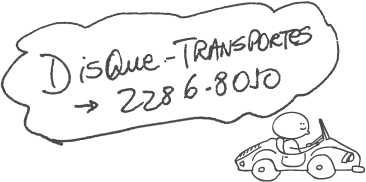 DisQue-TRANSPORTES
→ 2286-8010